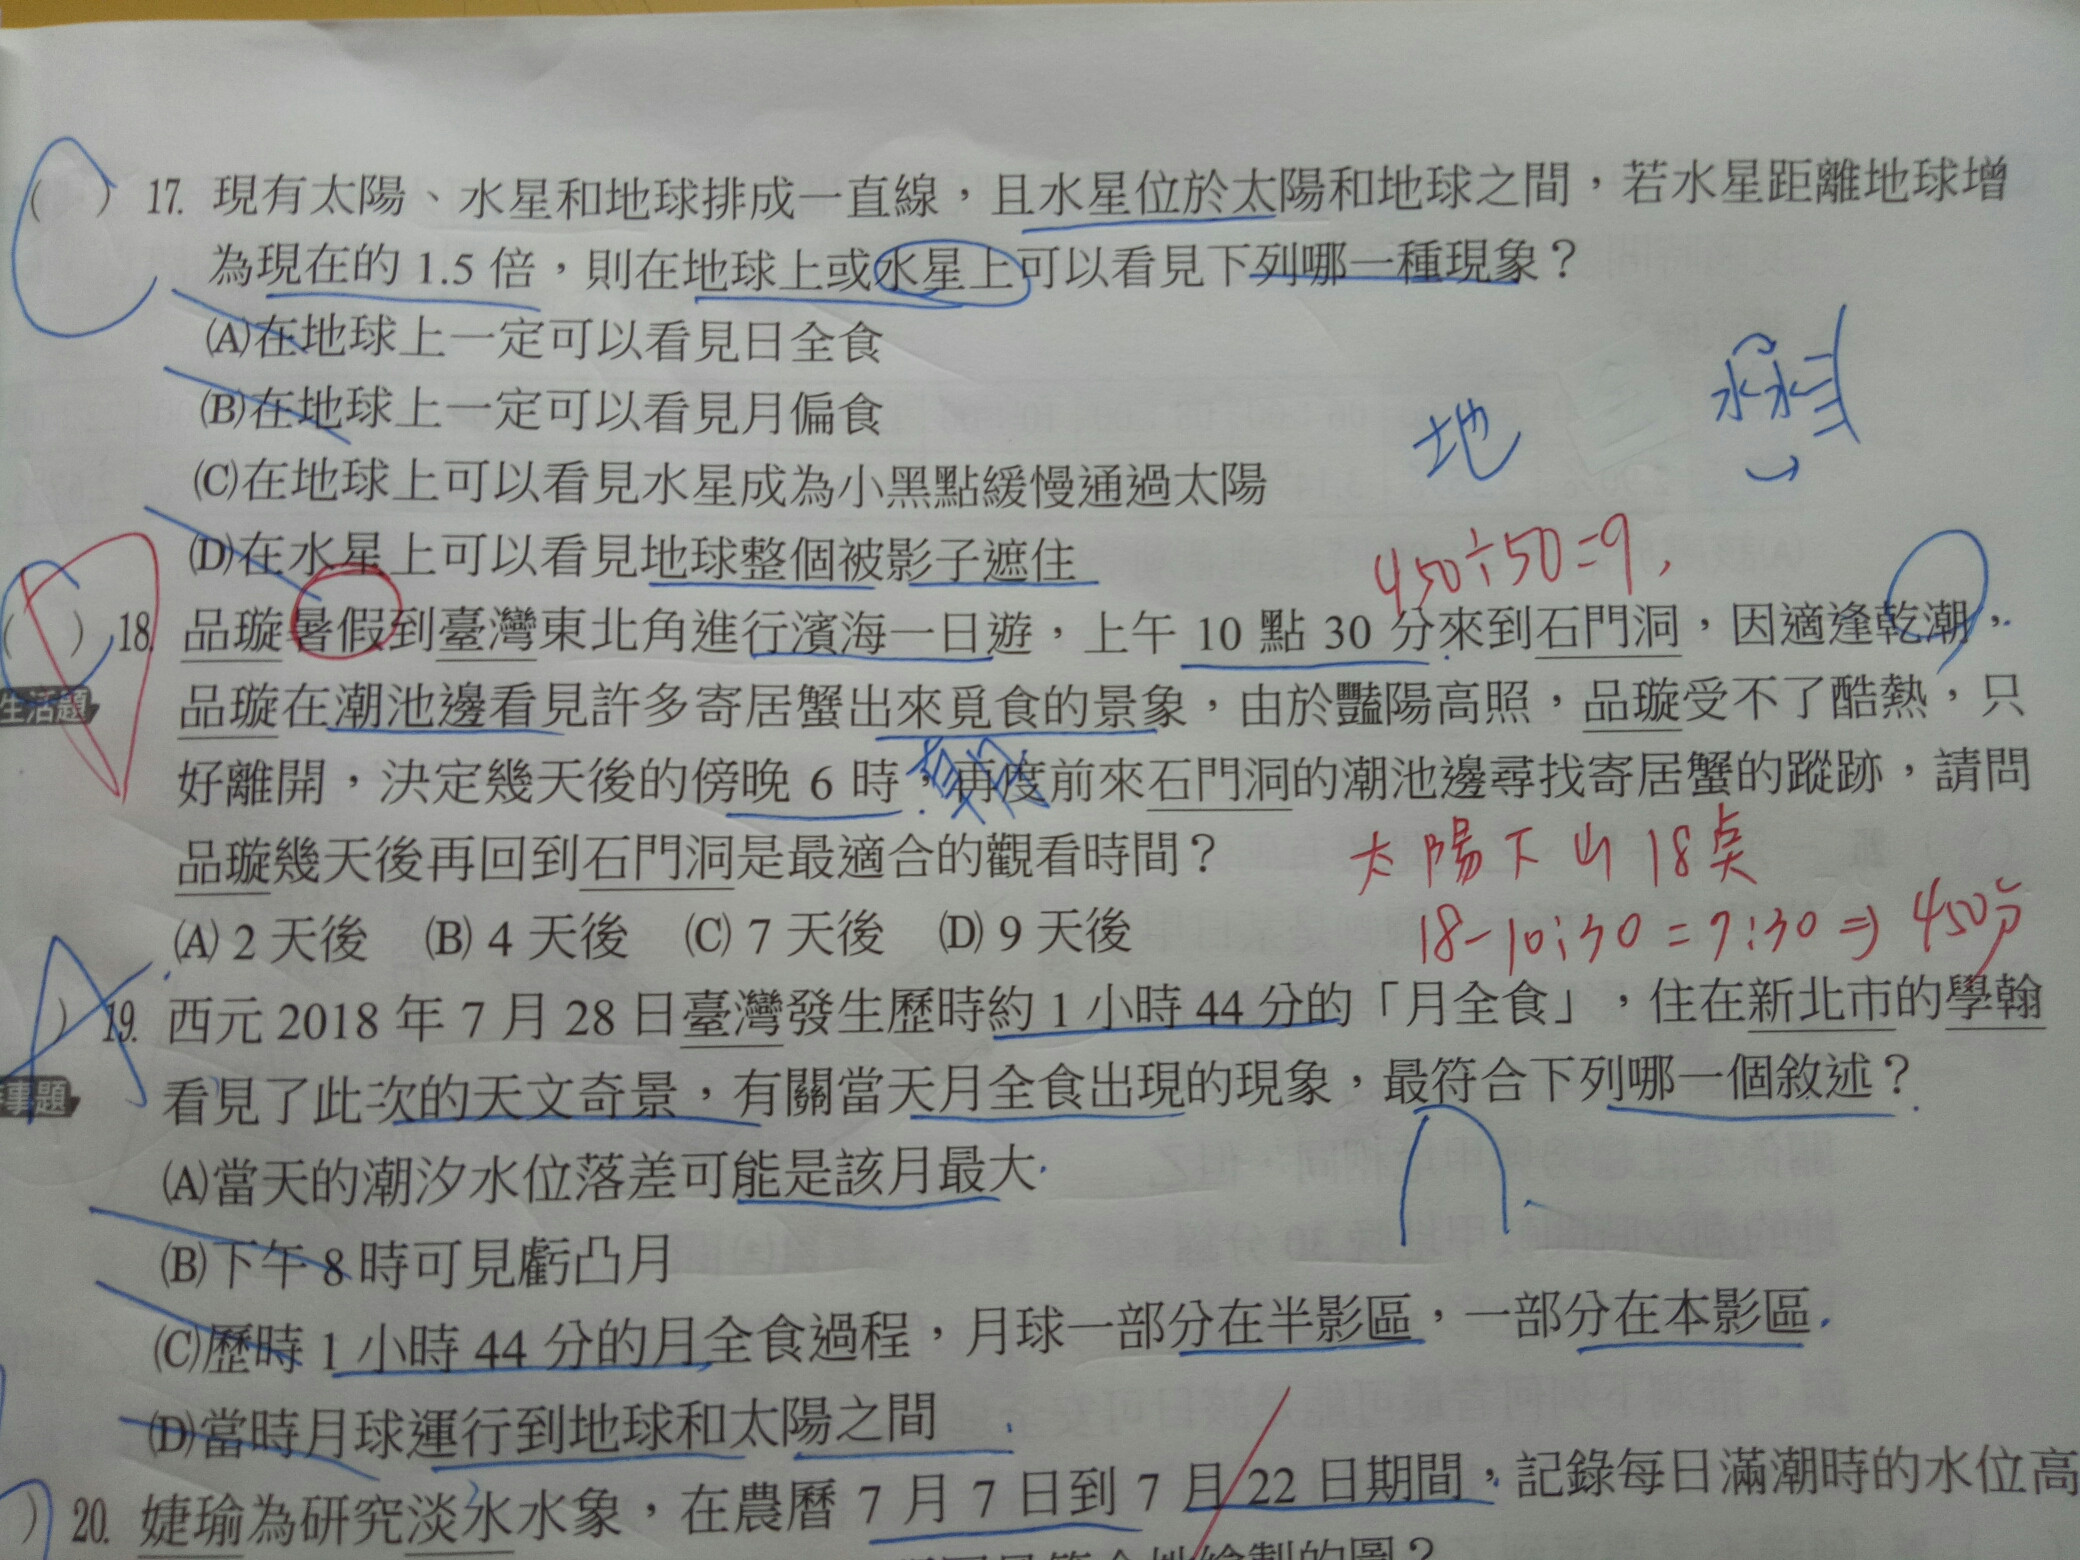 ( ) 17. 現有太陽、水星和地球排成一直線，且水星位於太陽和地球之間，若水星距離地球增
為現在的 1.5 倍，則在地球上或水星上可以看見下列哪一種現象？
(A)在地球上一定可以看見日全食
(B)在地球上一定可以看見月偏食
地 水水
(C)在地球上可以看見水星成為小黑點緩慢通過太陽
(D)在水星上可以看見地球整個被影子遮住
450÷50=9,
( ) 18. 品璇暑假到臺灣東北角進行濱海一日遊，上午 10 點 30 分來到石門洞，因適逢乾潮，
生活題
品璇在潮池邊看見許多寄居蟹出來覓食的景象，由於豔陽高照，品璇受不了酷熱，只
好離開，決定幾天後的傍晚 6 時，再度前來石門洞的潮池邊尋找寄居蟹的蹤跡，請問
品璇幾天後再回到石門洞是最適合的觀看時間？
太陽下山18点
(A) 2 天後 (B) 4 天後 (C) 7 天後 (D) 9 天後
18-10:30=7:30⇒450分
) 19. 西元 2018 年 7 月 28 日臺灣發生歷時約 1 小時 44 分的「月全食」，住在新北市的學翰
事題
看見了此次的天文奇景，有關當天月全食出現的現象，最符合下列哪一個敘述？
(A)當天的潮汐水位落差可能是該月最大
(B)下午 8 時可見虧凸月
(C)歷時 1 小時 44 分的月全食過程，月球一部分在半影區，一部分在本影區
(D)當時月球運行到地球和太陽之間
) 20. 婕瑜為研究淡水水象，在農曆 7 月 7 日到 7 月 22 日期間，記錄每日滿潮時的水位高